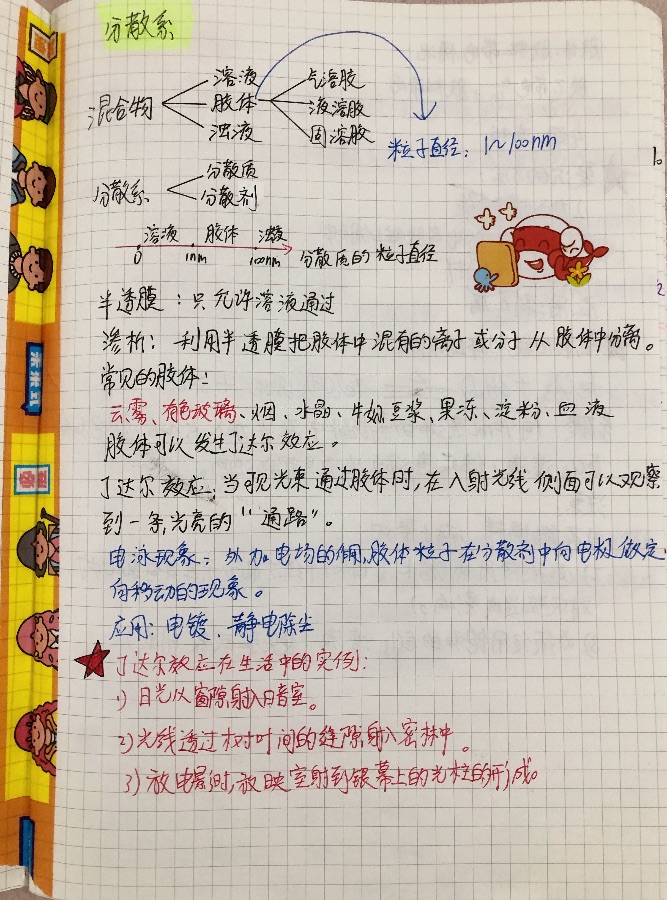 分散系
溶液
混合物
胶体
浊液
气溶胶
液溶胶
固溶胶
粒子直径：1~100nm
分散系
分散质
分散剂
溶液 胶体 浊液
0 1nm 100nm 分散质的粒子直径
半透膜：只允许溶液通过
渗析：利用半透膜把胶体中混有的离子或分子从胶体中分离。
常见的胶体：
云雾、有色玻璃、烟、水晶、牛奶、豆浆、果冻、淀粉、血液
胶体可以发生丁达尔效应。
丁达尔效应：当可见光束通过胶体时，在入射光线侧面可以观察
到一条光亮的“通路”。
电泳现象：外加电场的作用，胶体粒子在分散剂中向电极做定
向移动的现象。
应用：电镀、静电除尘
丁达尔效应在生活中的实例：
1）日光从窗隙射入暗室。
2）光线透过树叶间的缝隙射入密林中。
3）放电影时，放映室射到银幕上的光柱的形成。